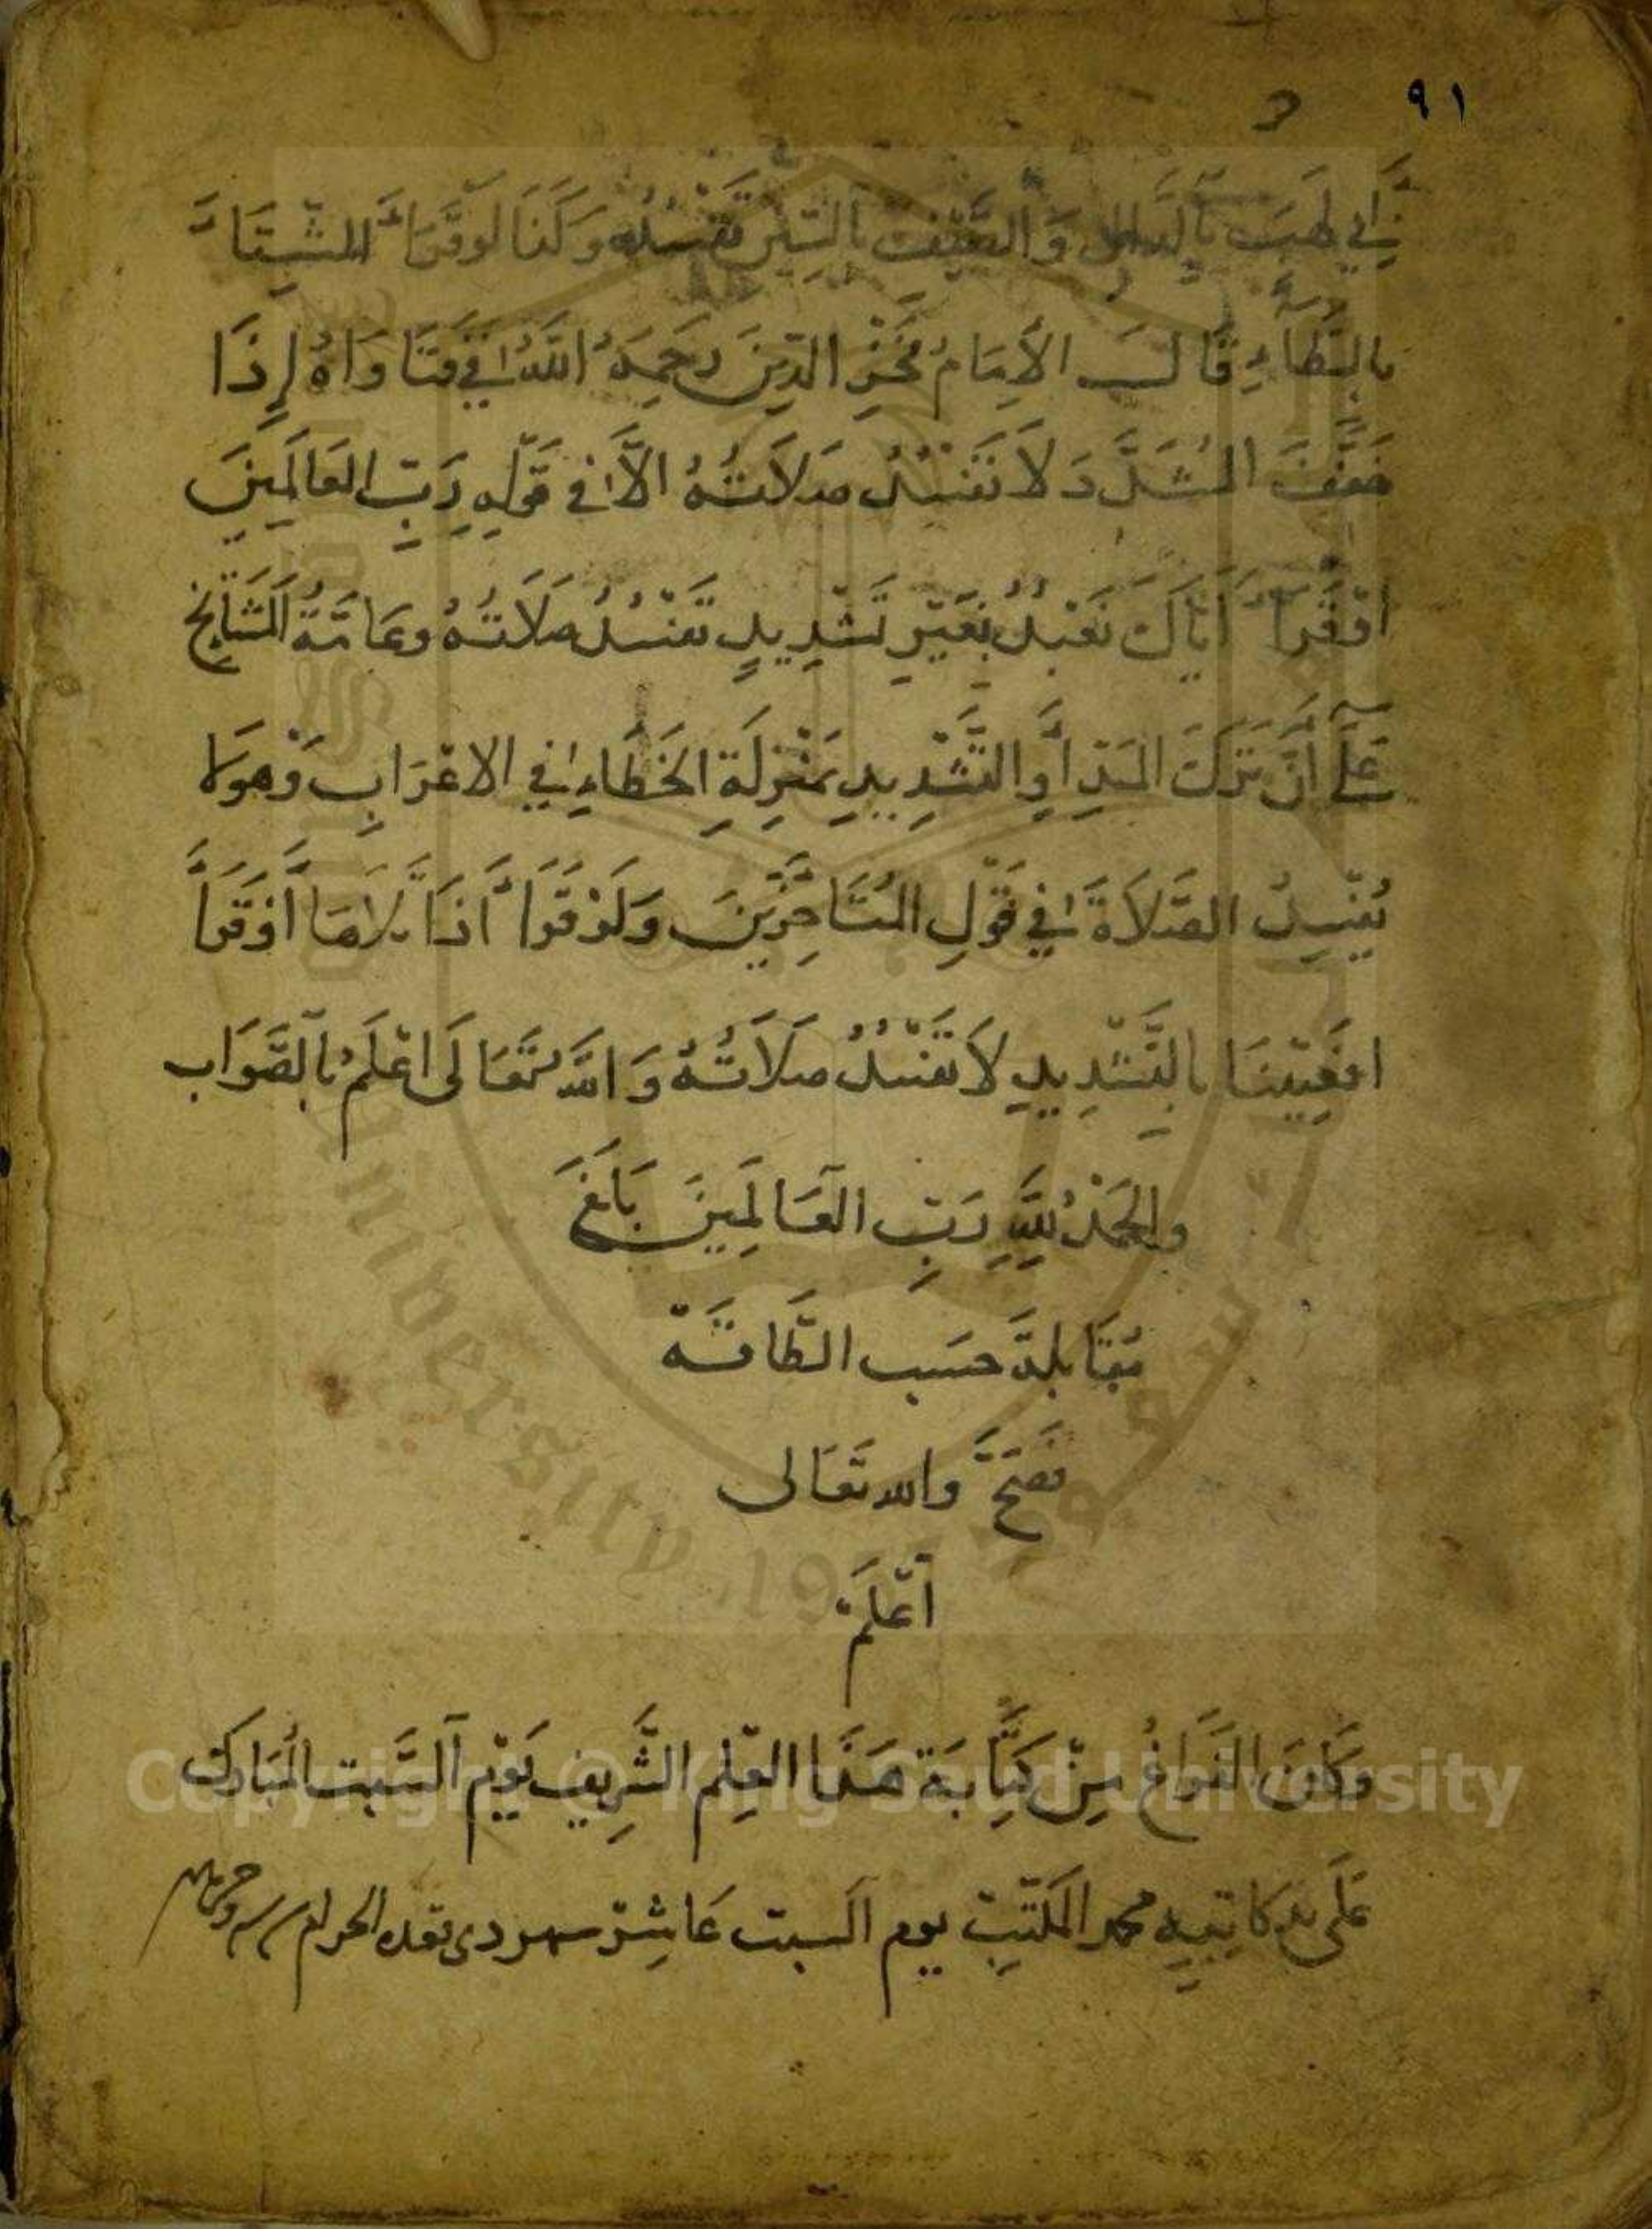 ٩١
أبي لهب والصيف بالسين تفسد وكذا لو قرأ الشتاء
بالطاء قال الإمام فخر الدين رحمه الله في فتاواه إذا
خفف المشدد لا تفسد صلاته الا في قوله رب العالمين
اوقرأ اياك نعبد بغير تشديد تفسد صلاته وعامة المشايخ
على أن ترك المد أو التشديد بمنزلة الخطاء في الاعراب وهو لا
يفسد الصلاة في قول المتأخرين ولو قرأ بلاها أوقرأ
افعيينا بالتشديد لا تفسد صلاته والله تعالى اعلم بالصواب
والحمد لله رب العالمين بلغ
مقابلة حسب الطاقة
فصح والله تعالى
أعلم
وكان الفراغ من كتابة هذا العلم الشريف يوم السبت المبارك
على يد كاتبه محمد المكتب يوم السبت عاشر شهر دى قعده الحرام
Copyright © King Saud University